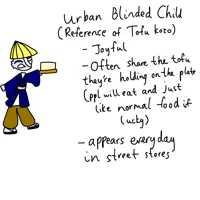 Urban Blinded Child
(Reference of Tofu kozo)
- Joyful
- Often share the tofu
they're holding on the plate
(ppl will eat and just
like normal food if
lucky)
- appears everyday
in street stores